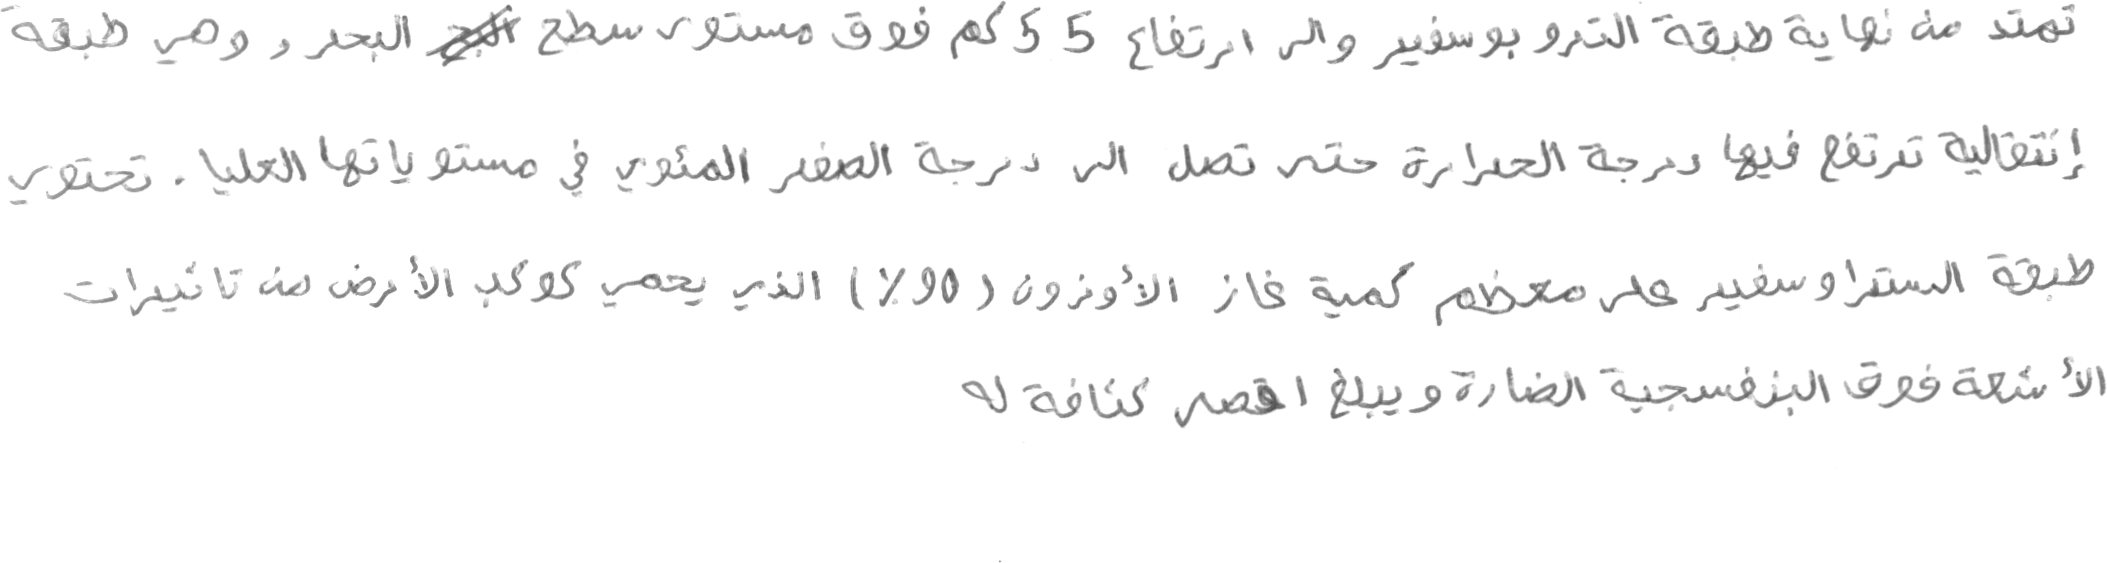 تمتد من نهاية طبقة التروبوسفير والى ارتفاع 55 كم فوق مستوى سطح البحر، وهي طبقة
إنتقالية ترتفع فيها درجة الحرارة حتى تصل الى درجة الصفر المئوي في مستوياتها العليا. تحتوي
طبقة الستراوسفير على معظم كمية غاز الأوزون (90٪) الذي يحمي كوكب الأرض من تاثيرات
الأشعة فوق البنفسجية الضارة ويبلغ اقصى كثافة له